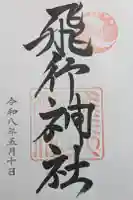 飛行神社
令和八年五月十日